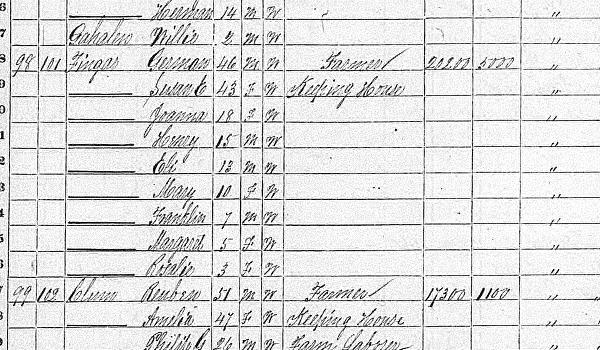 6 Herman 14 M W
7 Gahalen Willie 2 M W "
8 98 101 Fingar German 46 M W Farmer 20200 5000 "
9 Susan E 43 F W Keeping House "
0 Joanna 18 F W "
1 Henry 15 M W "
2 Eli 13 M W "
3 Mary 10 F W "
4 Franklin 7 M W "
5 Margaret 5 F W "
6 Rosalie 3 F W "
7 99 102 Clum Reuben 51 M W Farmer 17300 1100 "
8 Amelia 47 F W Keeping House "
9 Philip G 26 M W Farm Laborer "